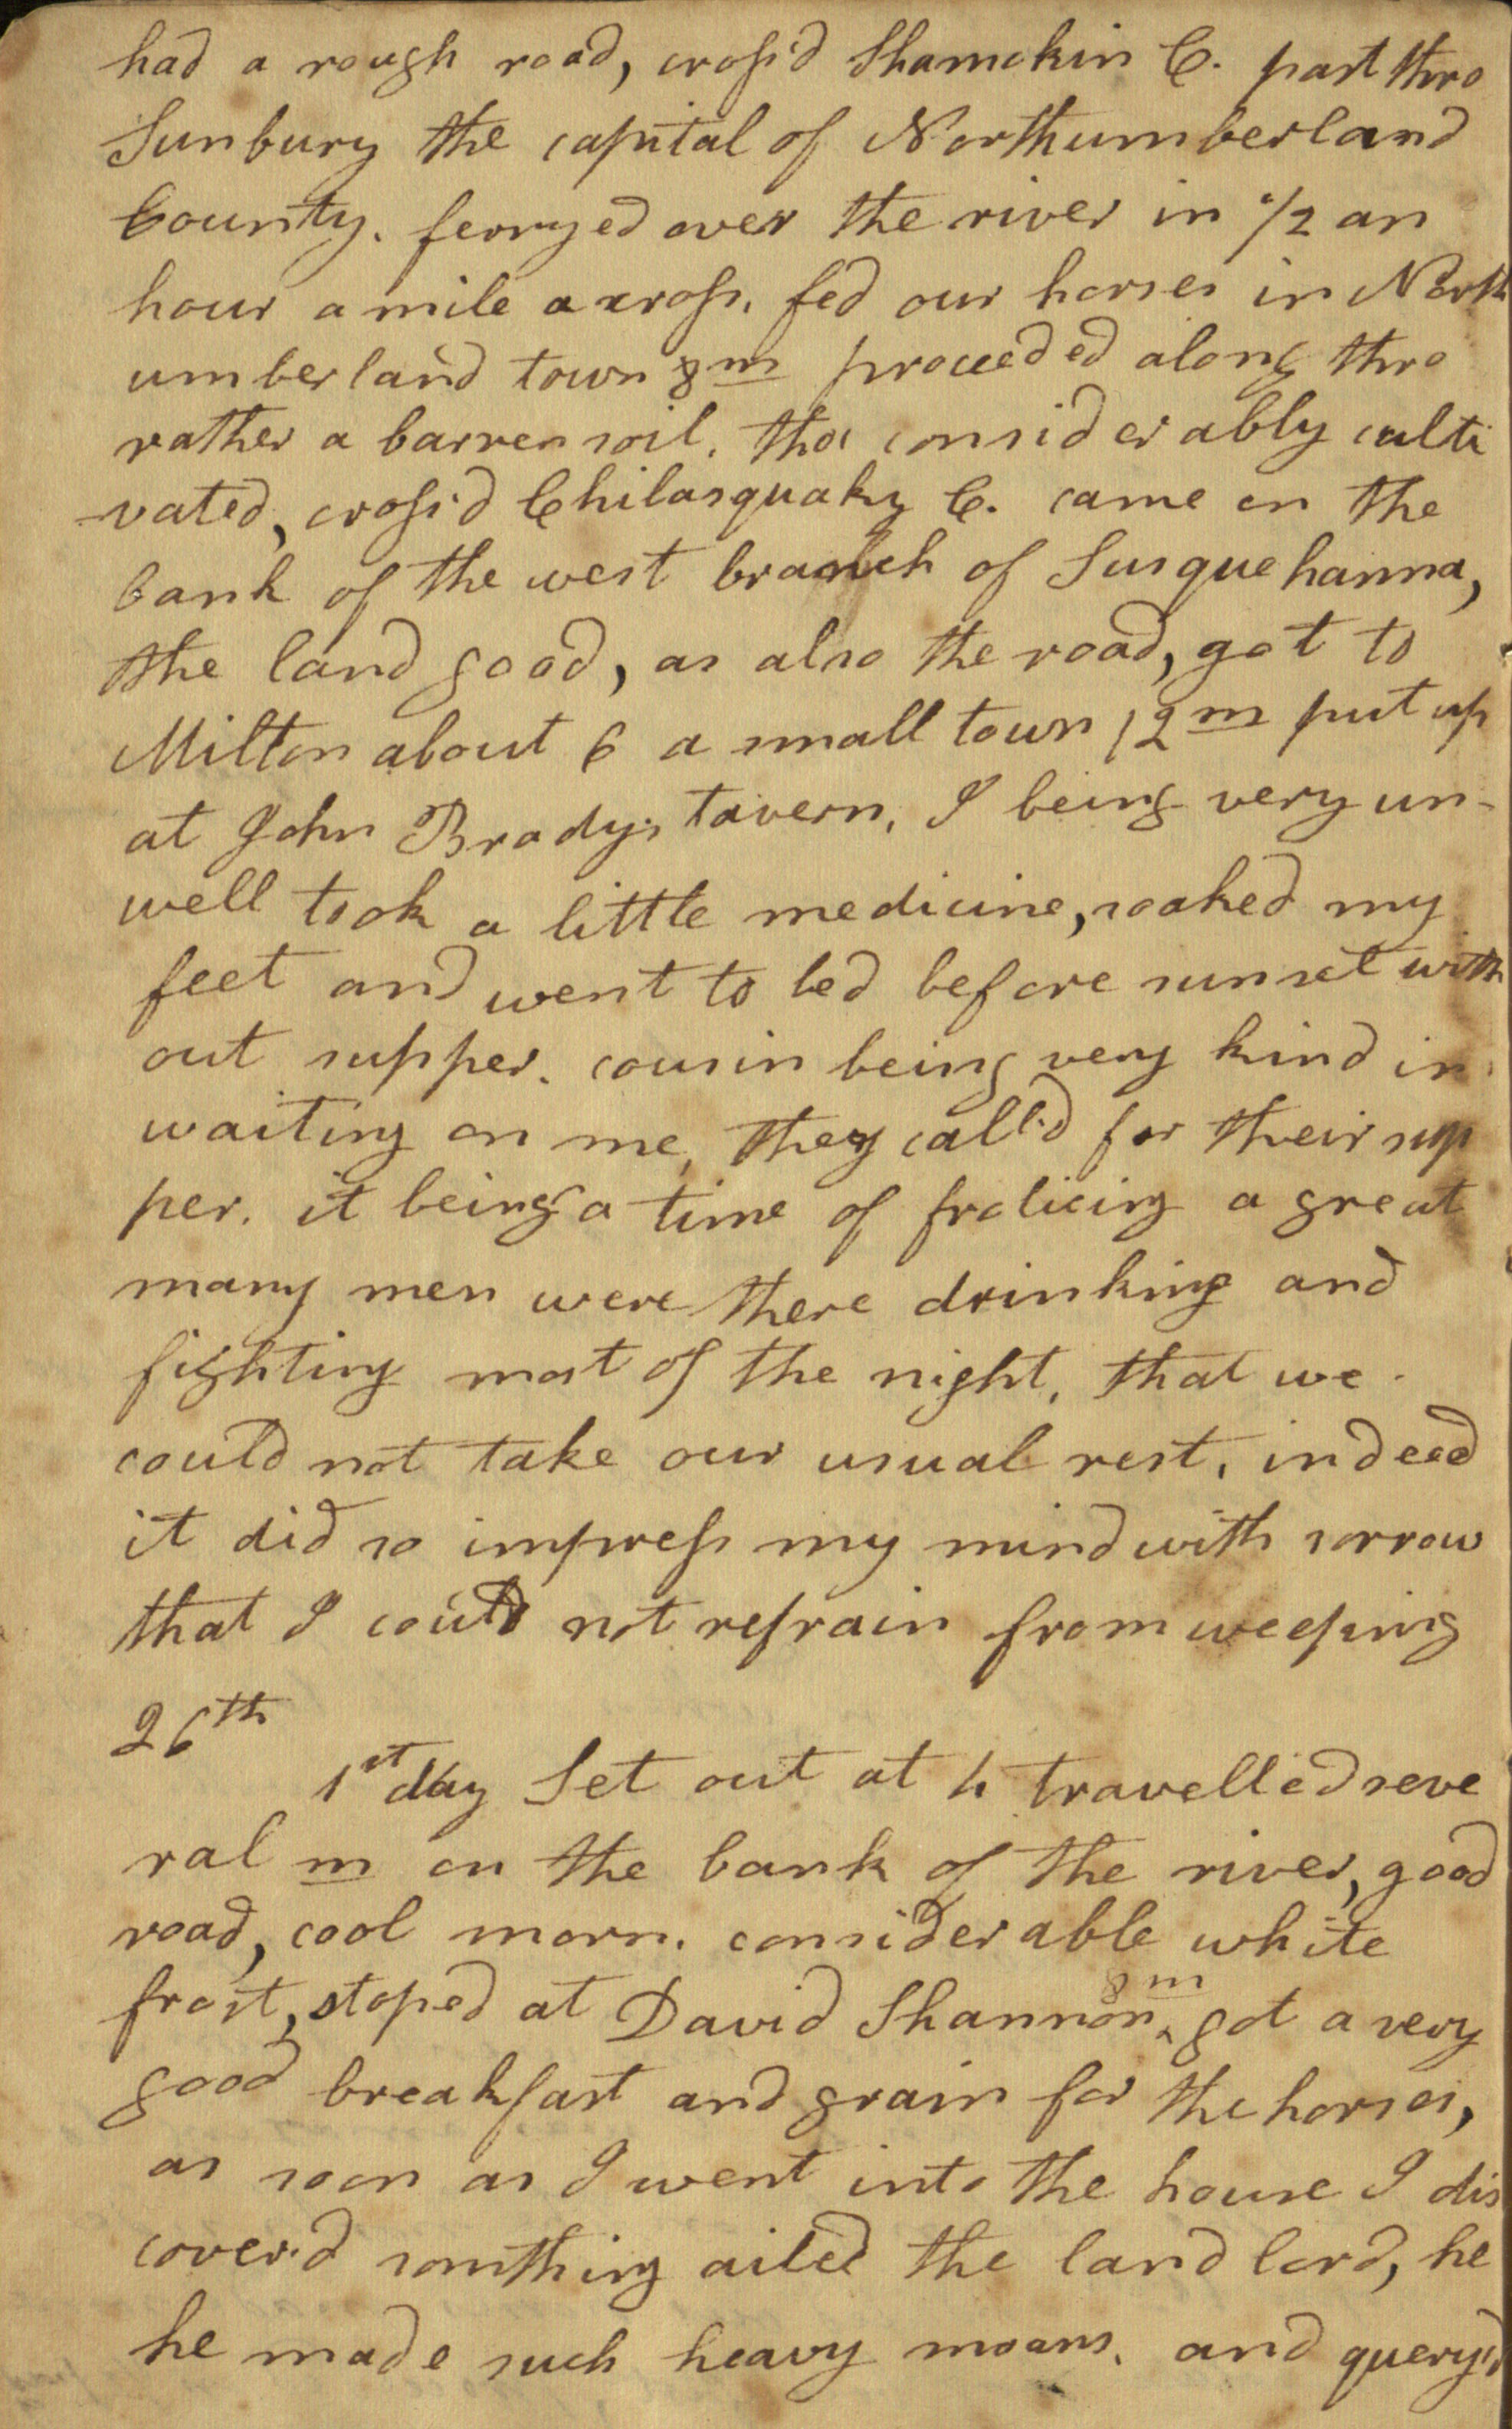 had a rough road, cross'd Shamokin C. past thro
Sunbury the capital of Northumberland
County. ferryed over the river in 1/2 an
hour a mile across, fed our horses in North
umberland town 8 m proceeded along thro
rather a barren soil, tho considerably culti
-vated, cross'd Chilasquaky C. came on the
bank of the west branch of Susquehanna,
the land good, as also the road, got to
Milton about 6 a small town 12 m put up
at John Bradys tavern, I being very un-
well took a little medicine, soaked my
feet and went to bed before sunset with
out supper. cousin being very kind in
waiting on me, they call'd for their sup
per. it being a time of frolicing a great
many men were there drinking and
fighting most of the night, that we
could not take our usual rest, indeed
it did so impress my mind with sorrow
that I could not refrain from weeping
26th
1st day Set out at 4 travelled seve
ral m on the bank of the river, good
road, cool morn. considerable white
frost, stoped at David Shannon 8 m ‸ got a very
good breakfast and grain for the horses,
as soon as I went into the house I dis
cover'd somthing ailed the land lord, he
he made such heavy moans, and query'd